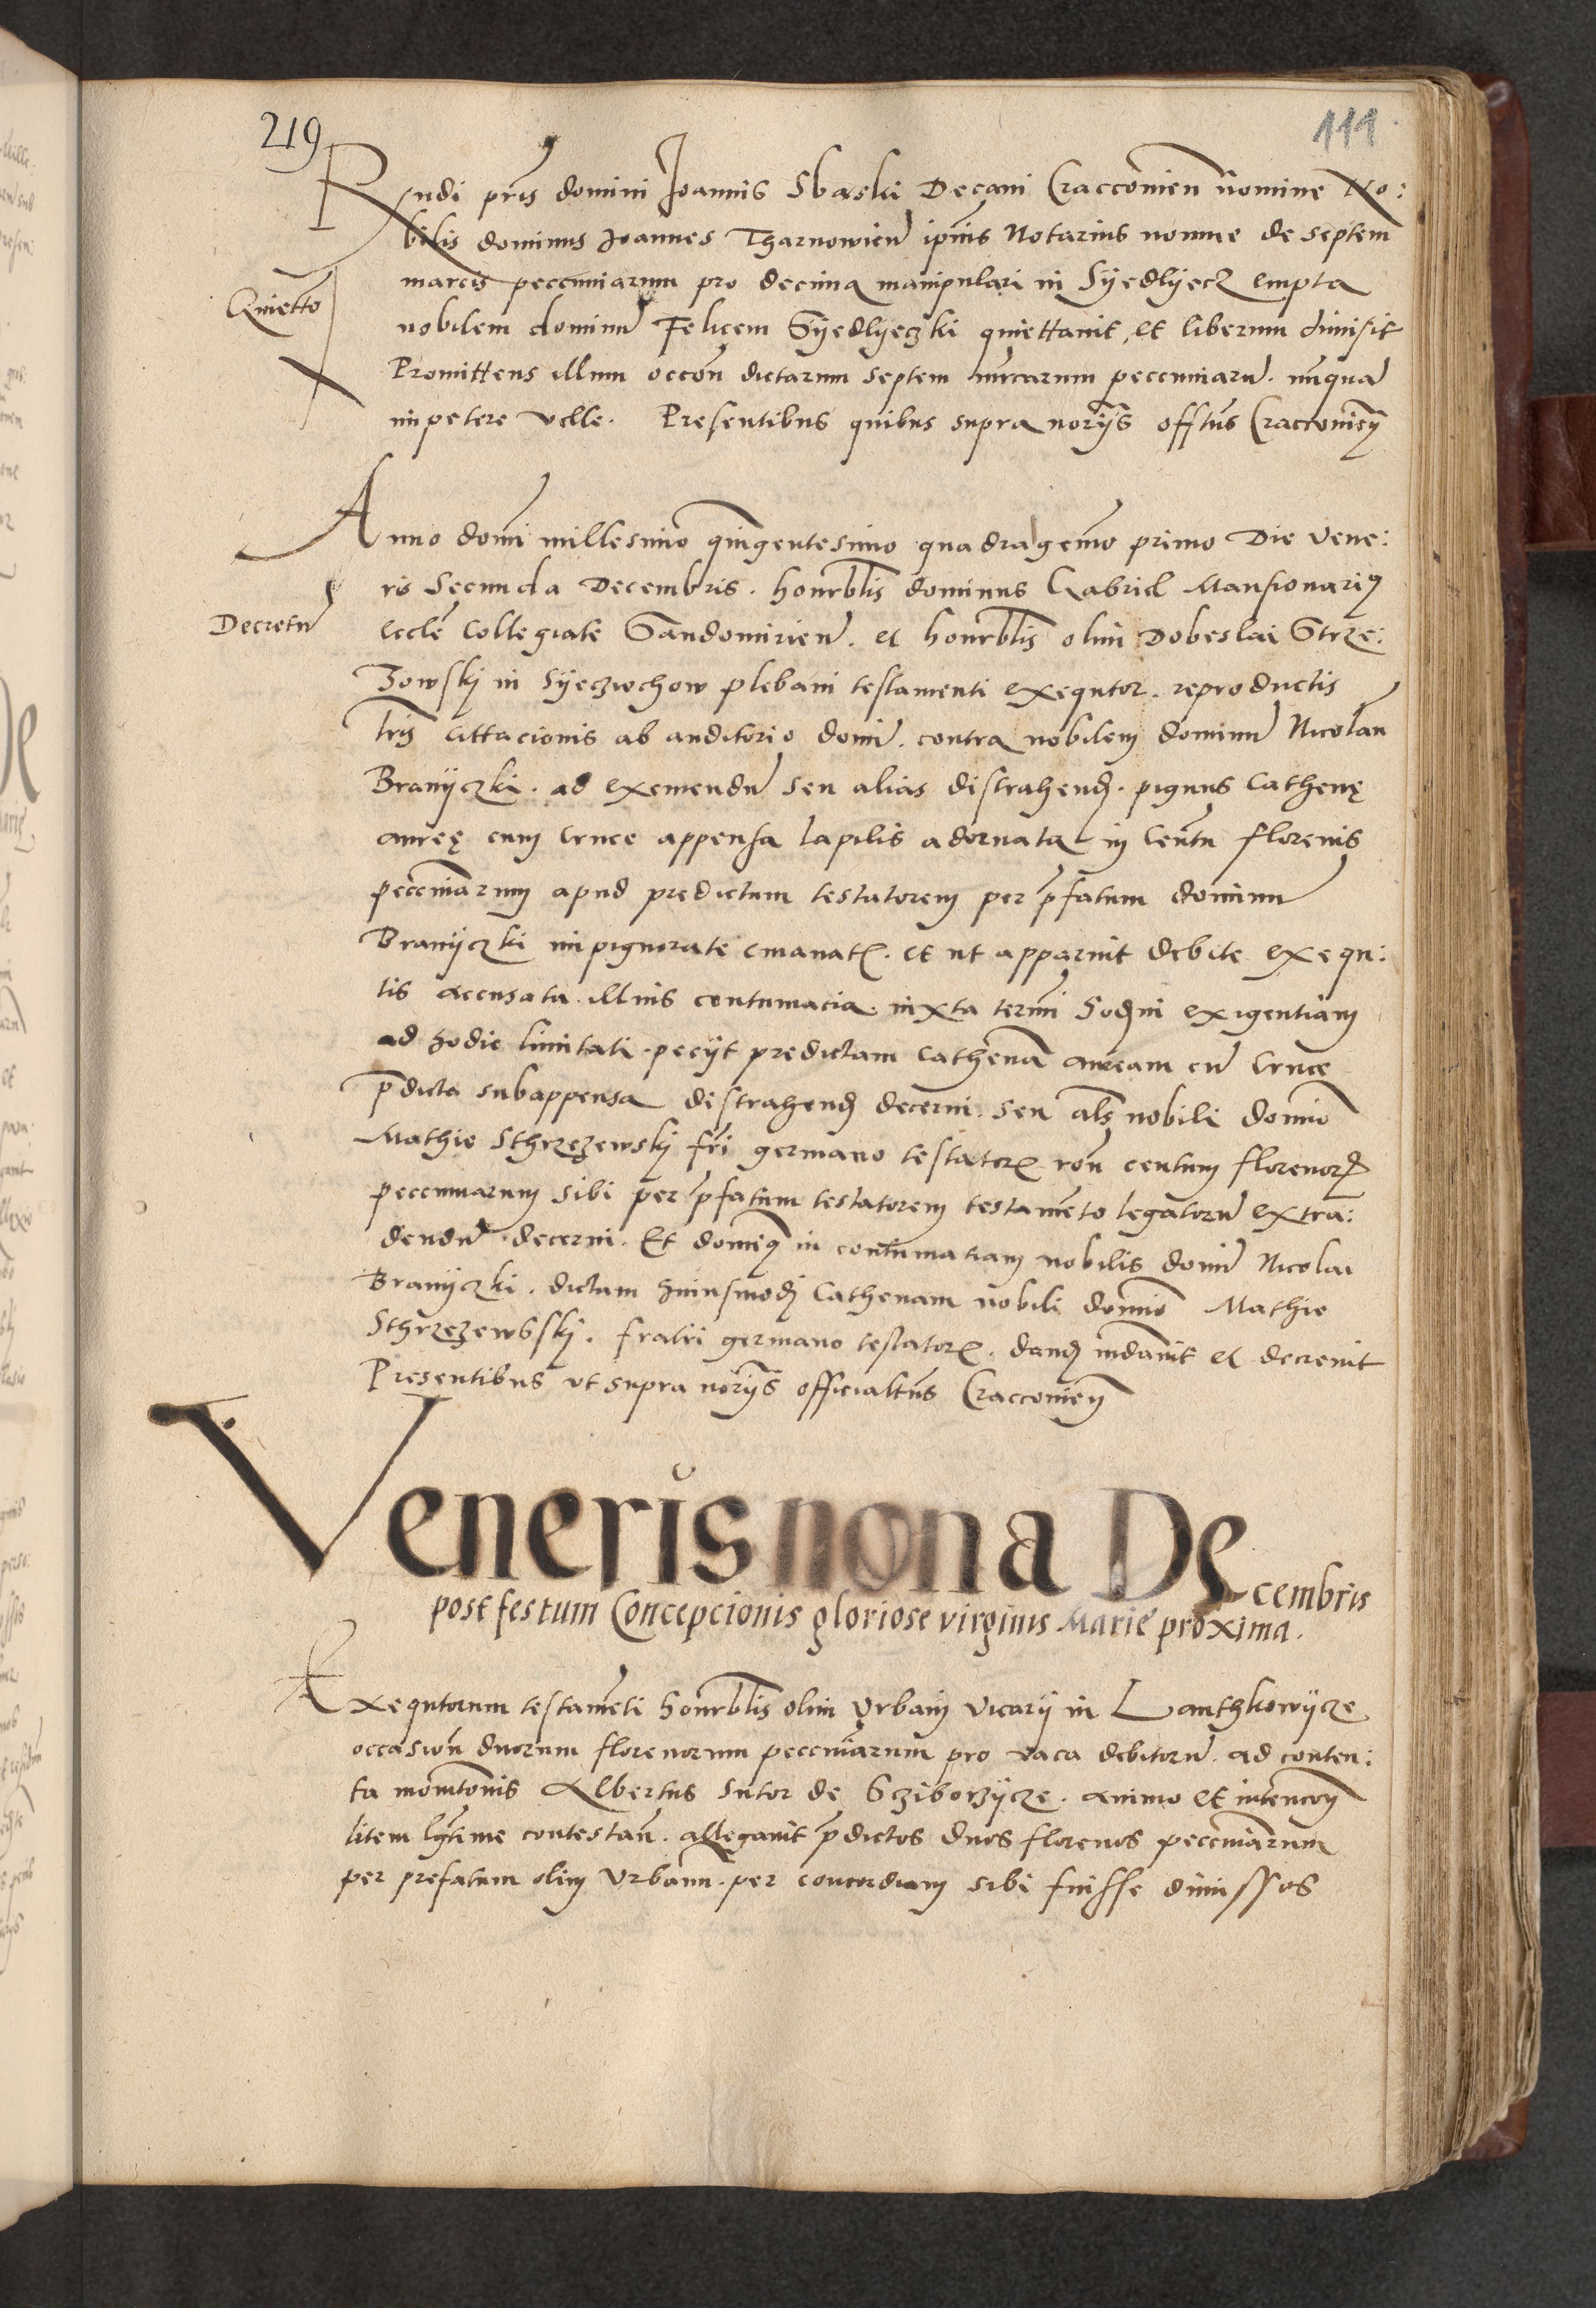 219
111
Rndi pris domini Joannis Sbaski Decani Cracconien nomine No:
bilis dominus Joannes Tharnowien ipius Notarius nomine de septem
marcis peccuniarum pro decima manipulari in Syedlyecz empta
Quietto
nobilem dominu Felicem Syedlyeczki quiettauit, et liberum dimisit
Promittens illum occon dictarum septem mrcarum peccuniaru. nunqua
impetere velle. Presentibus quibus supra noriis offtus Cracconien
Anno domi millesimo quingentesimo quadragemo primo Die Vene:
ris Secunda Decembris. honrblis dominus Gabriel Mansionari9
Decretu
eccle Collegiate Sandomirien. et honrblis olim Dobeslai Strze:
zowskj in Syeczwchow plebani testamenti exequtor. reproductis
lris Cittacionis ab auditorio domi. contra nobilem dominu Nicolau
Branyczki. ad exemendu seu alias distrahend. pignus Cathenę
aureę cum Cruce appensa lapilis adornata in Centu florenis
peccuniarum apud predictum testatorem per pfatum dominu
Branyczki impignorate emanat. et ut apparuit debite exequ:
tis accusata illius contumacia. iuxta termi hodni exigentiam
ad hodie limitati. peciit predictam Cathena auream cu Cruce
pdicta subappensa distrahend decerni. seu als nobili domio
Mathie Sthrzezewskj fri germano testator ron centum florenor
peccuniarum sibi per pfatum testatorem testameto legatoru extra:
dendu decerni. Et domi9 in contumatiam nobilis domi Nicolai
Branyczki. dictam huiusmodj Cathenam nobili domio Mathie
Sthrzezewskj. fratri germano testator. dand indauit et decreuit
Presentibus ut supra noriis officialtus Cracconien
Veneris nona De
cembris
post festum Concepcionis gloriose virginis Marie proxima.
Exequtorum testameti honrblis olim Vrbani Vicarii in Lanthkowycze
occasion duorum florenorum peccuniarum pro vaca debitoru. ad conten:
ta monitonis Albertus Sutor de Scziborzycze. animo et intencon
litem lgtime contestan. allegauit pdictos duos florenos peccuniarum
per prefatum olim Vrbanu. per concordiam sibi fuisse dimissos